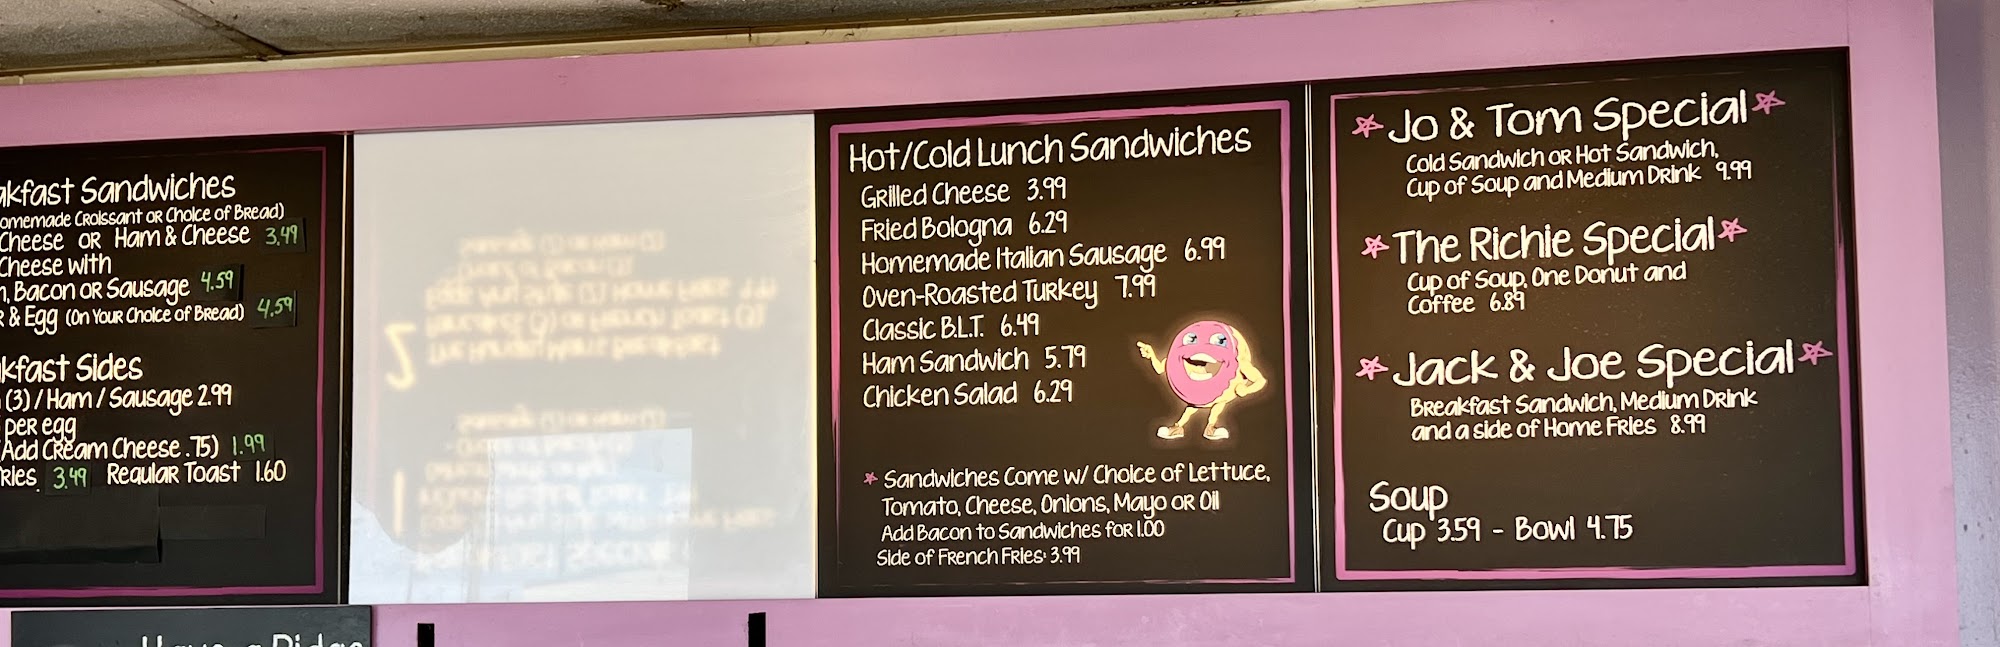 Sandwiches
Croissant or Choice of Bread)
Cheese or Ham & Cheese 3.49
Cheese with
Bacon or Sausage 4.59
& Egg (On Your Choice of Bread) 4.59
Sides
(3) / Ham / Sausage 2.99
per egg
(Add Cream Cheese .75) 1.99
3.49 Regular Toast 1.60
Have a
Hot/Cold Lunch Sandwiches
Grilled Cheese 3.99
Fried Bologna 6.29
Homemade Italian Sausage 6.99
Oven-Roasted Turkey 7.99
Classic B.L.T. 6.49
Ham Sandwich 5.79
Chicken Salad 6.29
Sandwiches Come w/ Choice of Lettuce,
Tomato, Cheese, Onions, Mayo or Oil
Add Bacon to Sandwiches for 1.00
Side of French Fries: 3.99
Jo & Tom Special
Cold Sandwich or Hot Sandwich,
Cup of Soup and Medium Drink 9.99
The Richie Special
Cup of Soup, One Donut and
Coffee 6.89
Jack & Joe Special
Breakfast Sandwich, Medium Drink
and a side of Home Fries 8.99
Soup
Cup 3.59 - Bowl 4.75